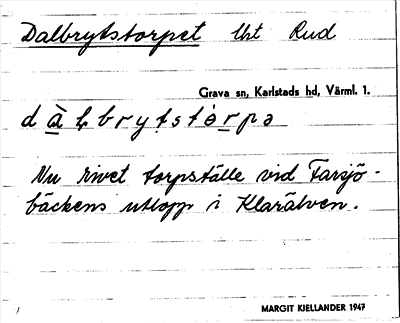 Dalbrytstorpet lht Rud
Grava sn, Karlstads hd, Värml. l.
Nu rivet torpställe vid Farsjö-
bäckens utlopp i Klarälven.
MARGIT KJELLANDER 1947